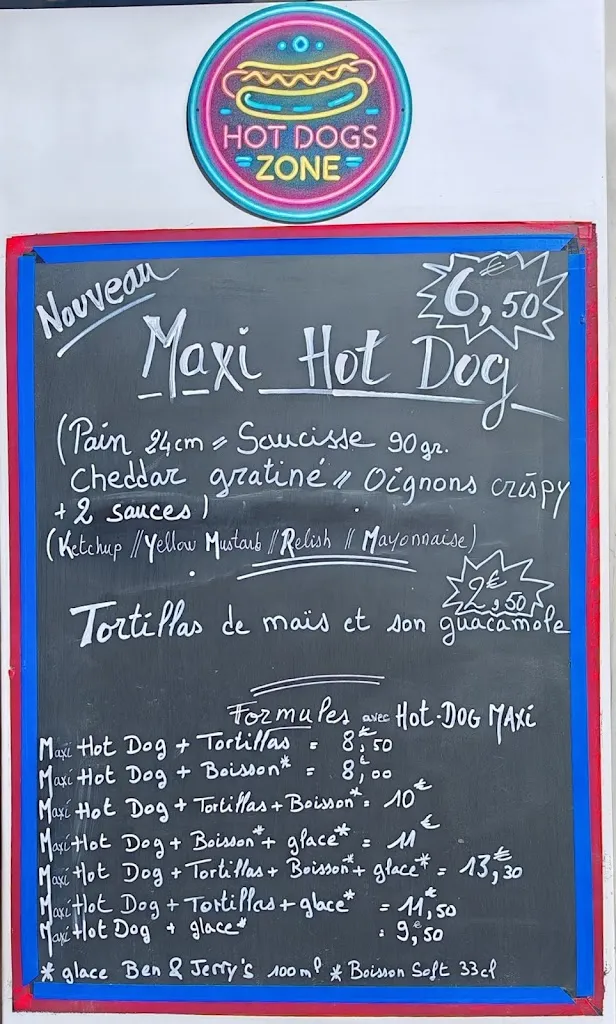 HOT DOGS
ZONE
Nouveau
6,€50
Maxi Hot Dog
(Pain 24cm = Saucisse 90gr.
Cheddar gratiné // Oignons crispy
+ 2 sauces)
(Ketchup // Yellow Mustard // Relish // Mayonnaise)
2,€50
Tortillas de maïs et son guacamole
Formules avec HOT-DOG MAXI
Maxi Hot Dog + Tortillas = 8,€50
Maxi Hot Dog + Boisson* = 8,€00
Maxi Hot Dog + Tortillas + Boisson* = 10€
Maxi Hot Dog + Boisson* + glace* = 11€
Maxi Hot Dog + Tortillas + Boisson* + glace* = 13,€30
Maxi Hot Dog + Tortillas + glace* = 11,€50
Maxi Hot Dog + glace* = 9,€50
* glace Ben & Jerry's 100ml * Boisson Soft 33cl